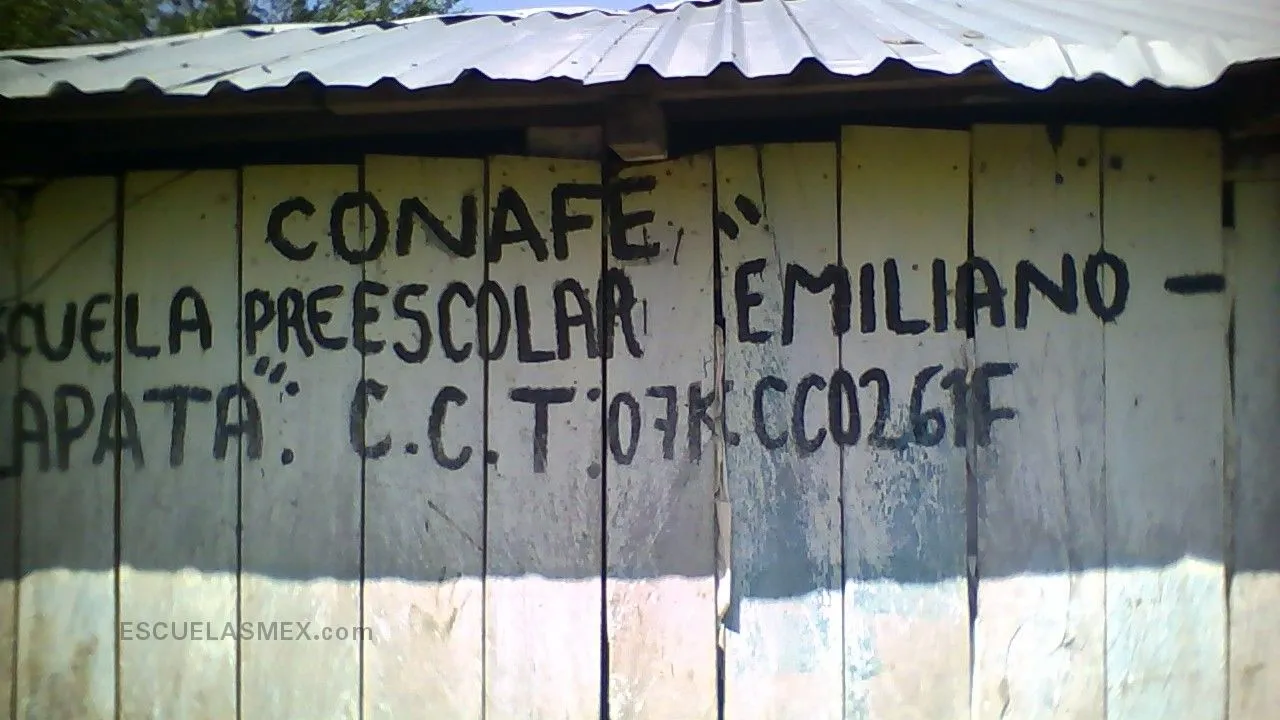 CONAFE, "
SCUELA PREESCOLAR EMILIANO -
ZAPATA": C.C.T:07KCC0261F
ESCUELASMEX.com